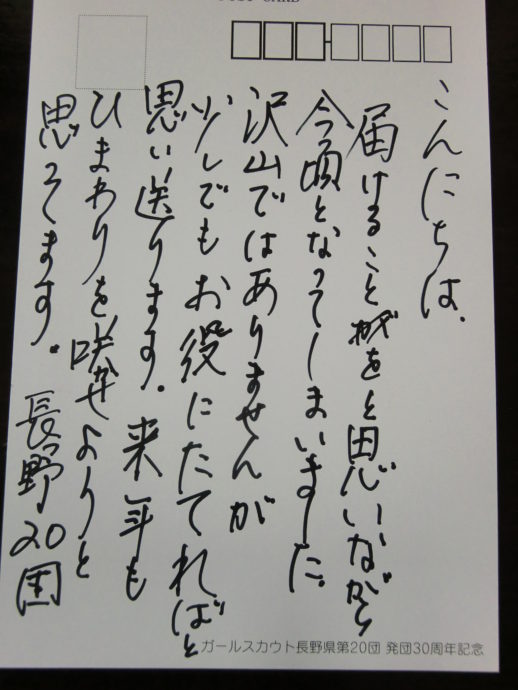 POST CARD
こんにちは.
届けることをと思いながら
今頃となってしまいました.
沢山ではありませんが
少しでもお役にたてればと
思い送ります. 来年も
ひまわりを咲かせよりと
思てます。 長野20団
ガールスカウト長野県第20団 発団30周年記念